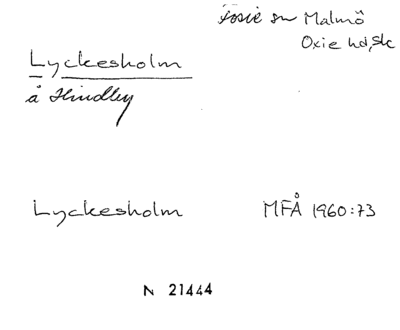 Fosie sn Malmö
Oxie hd, Sk
Lyckesholm
å Hindby
Lyckesholm MFÅ 1960:73
N 21444